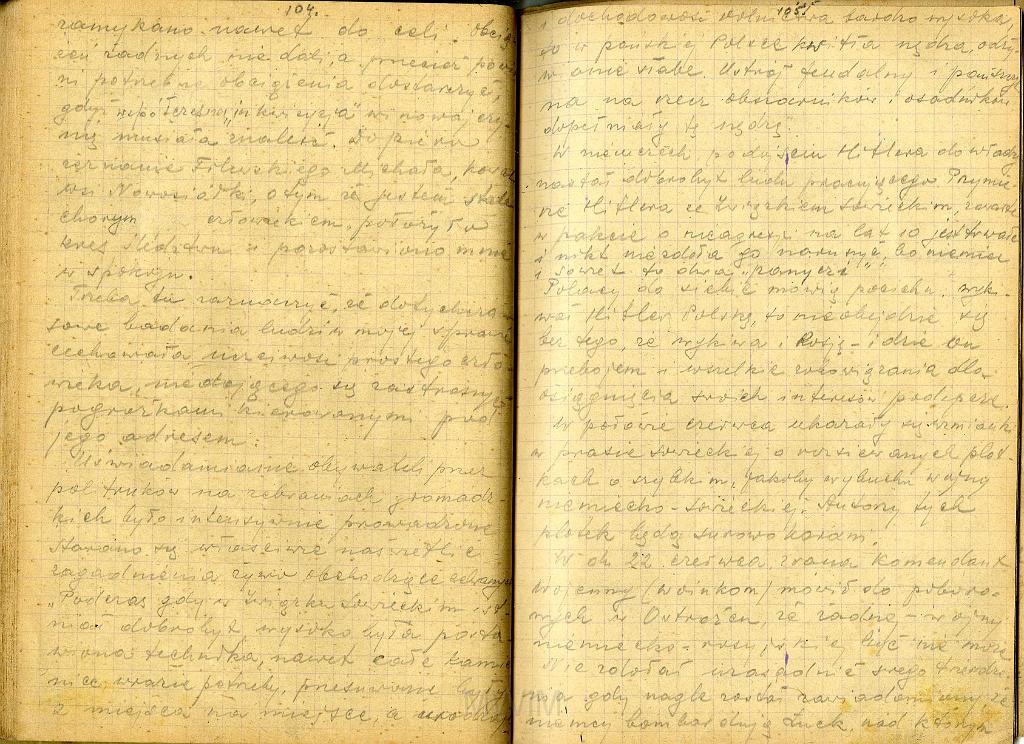 104.
zamykano nawet do celi. Obcią-
żeń żadnych nie dali, a przecież
potrzebne obciążenia dostarczyć,
gdyż "inkwizycja" w nowej
musiała znaleźć. Dopiero
zeznanie Filewskiego Michała,
wsi Nowosiółki, o tym że jestem stale
chorym człowiekiem, położyło
kres śledztwu i pozostawiono mnie
w spokoju.
Trzeba tu zaznaczyć, że dotychcza-
sowe badania ludzi w mojej sprawie
cechowała uczciwość prostego czło-
wieka, nie dającego się zastraszyć
pogróżkami kierowanymi pod
jego adresem.
Uświadamianie obywateli przez
politruków na zebraniach gromadz-
kich było intensywnie prowadzone
starano się właściwie naświetlić
zagadnienia żywo obchodzące
"Podczas gdy w Związku Sowieckim ist-
niał dobrobyt, wysoko była posta-
wiona technika, nawet całe kamie-
nice w razie potrzeby, przesuwane były
z miejsca na miejsce, a urodzaj
105.
i dochodowość rolnictwa bardzo wysoka,
to w pańskiej Polsce kwitła nędza, odży-
wianie słabe. Ustrój feudalny i pańszczyź-
na na rzecz obszarników i osadników
dopełniały tę nędzę."
W Niemczech, po dojściu Hitlera do władzy
nastał dobrobyt ludu pracującego. Przymie-
rze Hitlera ze Związkiem Sowieckim, zawarte
w pakcie o nieagresji na lat 10 jest trwałe
i nikt nie zdoła go naruszyć, bo niemiec
i sowiet to dwa "panycze".
Polacy do siebie mówią po cichu,
Hitler Polskę, to nie obejdzie się
bez tego, że wykiwa i Rosję - idzie on
przebojem i wszelkie zobowiązania dla
osiągnięcia swoich interesów podepcze.
W połowie czerwca ukazały się wzmianki
w prasie sowieckiej o rozsiewanych plot-
kach o szybkim, jakoby wybuchu wojny
niemiecko-sowieckiej. Autorzy tych
plotek będą surowo karani.
W dn. 22 czerwca, z rana komendant
wojenny (woinkom) mówił do poboro-
wych w Ostrożcu, że żadnej wojny
niemiecko-rosyjskiej być nie może
Nie zdołał uzasadnić swego twierdze-
nia gdy nagle został zawiadomiony, że
niemcy bombardują Łuck, nad którym